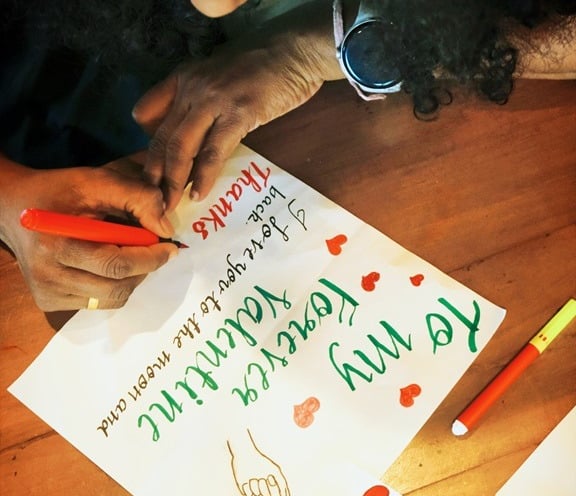 To my
Forever
Valentine
I love you to the moon and
back.
Thanks